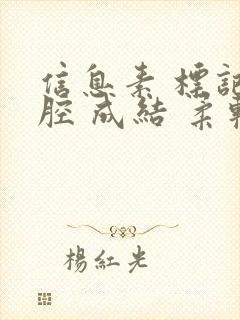 信息素 標記
腔 成結 柔軟
楊紅光